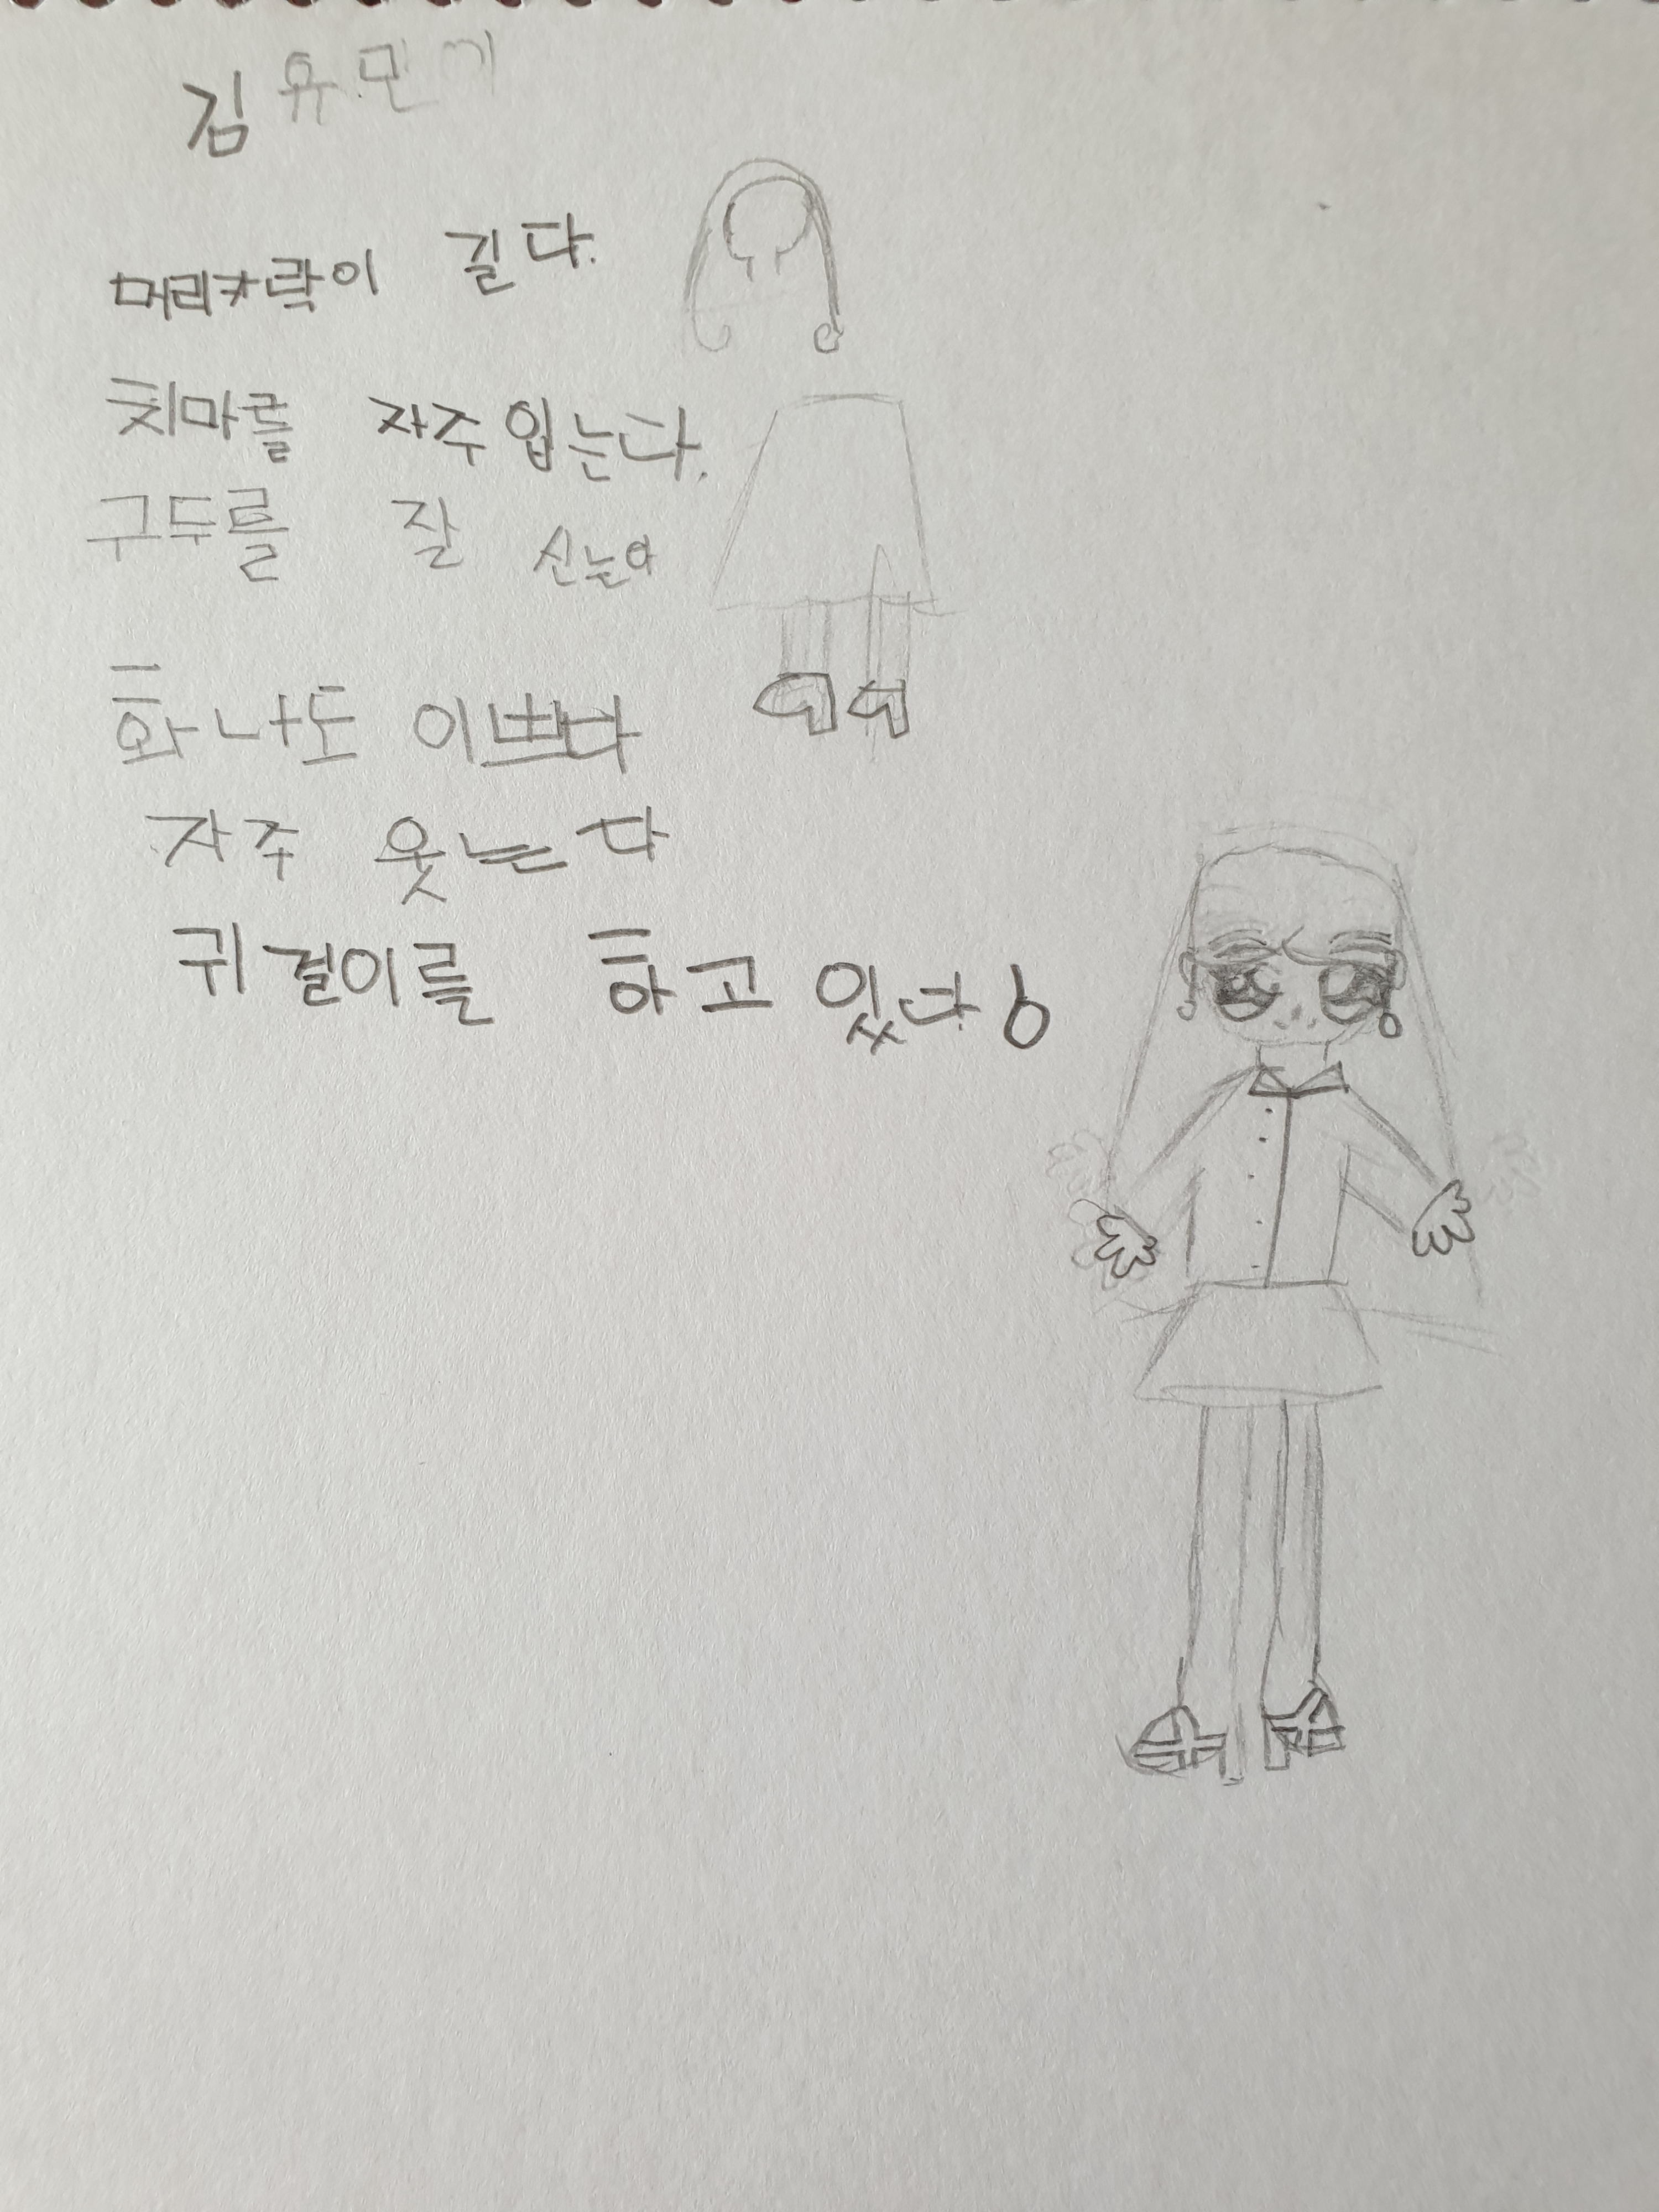 김유민
머리카락이 길다.
치마를 자주 입는다.
구두를 잘 신는다
화나도 이쁘다
자주 웃는다
귀걸이를 하고 있다